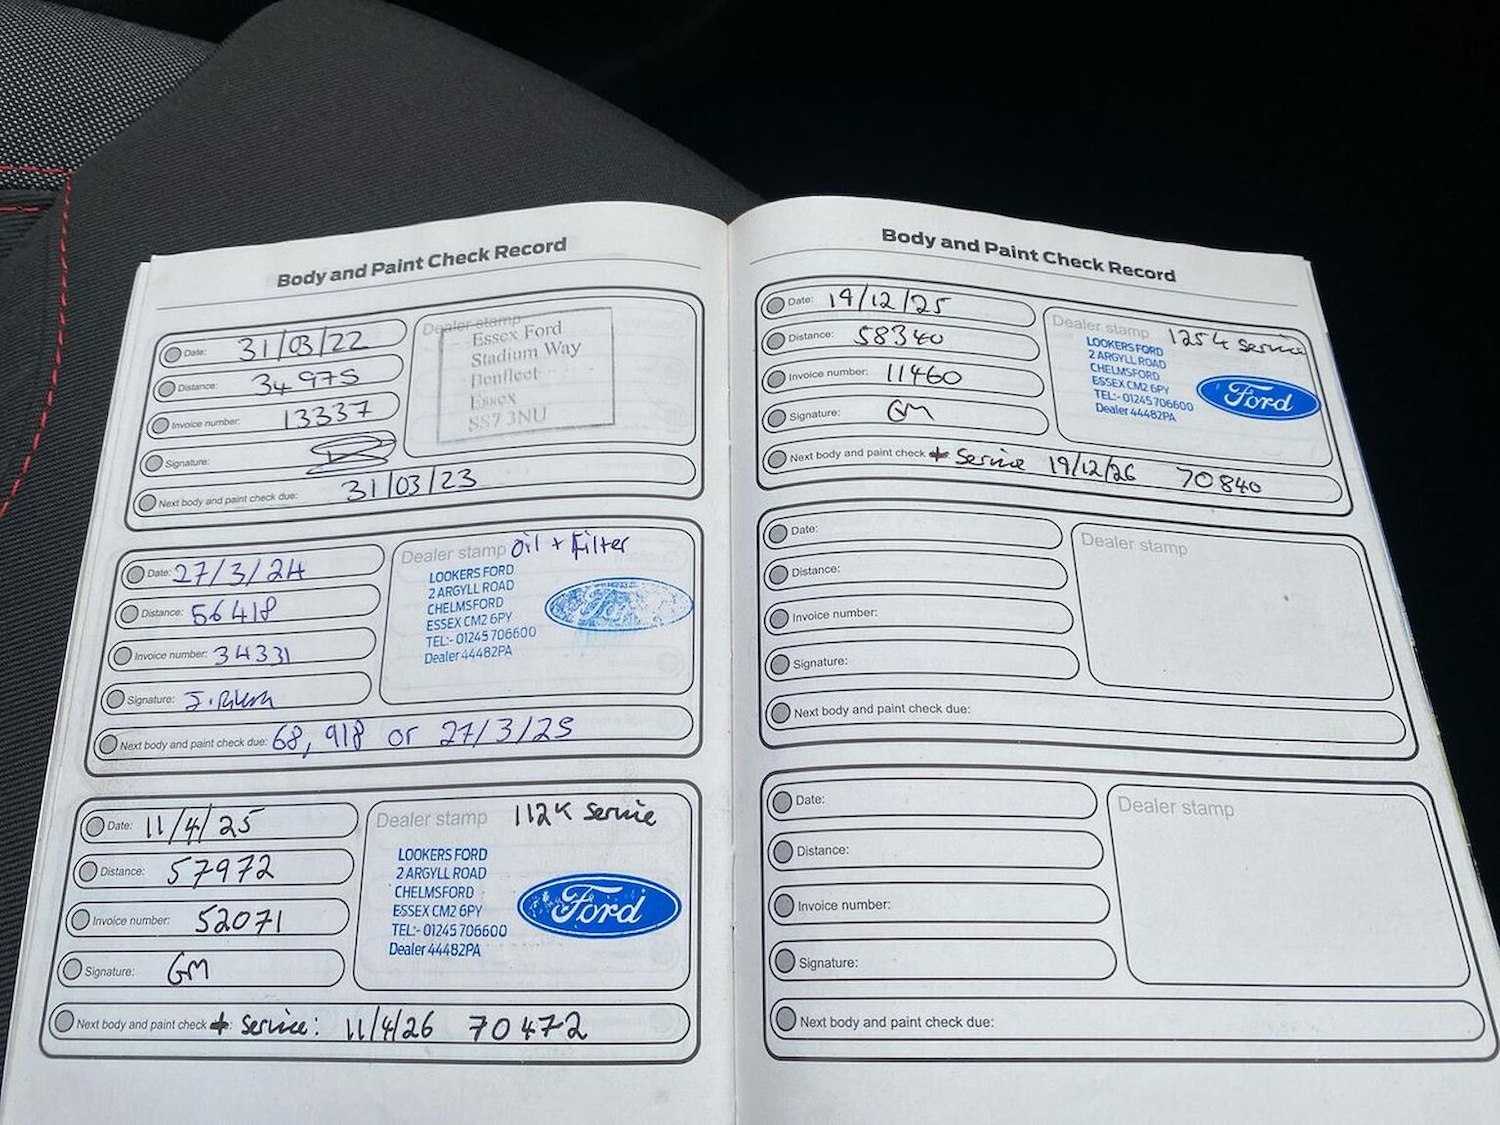 Body and Paint Check Record
Date: 31/03/22
Distance: 34975
Invoice number: 13337
Signature:
Next body and paint check due: 31/03/23
Dealer stamp
Essex Ford
Stadium Way
Benfleet
Essex
SS7 3NU
Date: 27/3/24
Distance: 56418
Invoice number: 34331
Signature:
Next body and paint check due: 68,918 or 27/3/25
Dealer stamp Oil + Filter
LOOKERS FORD
2 ARGYLL ROAD
CHELMSFORD
ESSEX CM2 6PY
TEL:- 01245 706600
Dealer 44482PA
Date: 11/4/25
Distance: 57972
Invoice number: 52071
Signature: GM
Next body and paint check + Service: 11/4/26 70472
Dealer stamp 112K Service
LOOKERS FORD
2 ARGYLL ROAD
CHELMSFORD
ESSEX CM2 6PY
TEL:- 01245 706600
Dealer 44482PA
Ford
Body and Paint Check Record
Date: 19/12/25
Distance: 58340
Invoice number: 11460
Signature: GM
Next body and paint check + Service 19/12/26 70840
Dealer stamp Service
LOOKERS FORD
2 ARGYLL ROAD
CHELMSFORD
ESSEX CM2 6PY
TEL:- 01245 706600
Dealer 44482PA
Ford
Date:
Distance:
Invoice number:
Signature:
Next body and paint check due:
Dealer stamp
Date:
Distance:
Invoice number:
Signature:
Next body and paint check due:
Dealer stamp